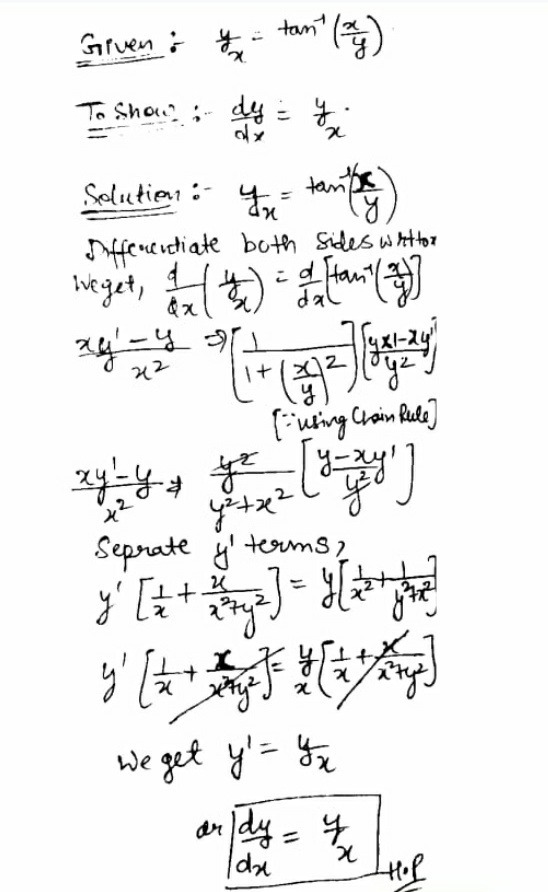 Given :- y/x = tan⁻¹(x/y)
To Show :- dy/dx = y/x.
Solution :- y/x = tan⁻¹(x/y)
Differentiate both sides w.r.to x
We get, d/dx (y/x) = d/dx [tan⁻¹(x/y)]
(xy' - y)/x² ⇒ [1/(1 + (x/y)²)] [(y×1 - xy')/y²]
[∵ using Chain Rule]
(xy' - y)/x² ⇒ y²/(y² + x²) [(y - xy')/y²]
Seprate y' terms,
y' [1/x + x/(x²+y²)] = y [1/x² + 1/(y²+x²)]
y' [1/x + x/(x²+y²)] = y/x [1/x + x/(x²+y²)]
We get y' = y/x
or dy/dx = y/x
H.P